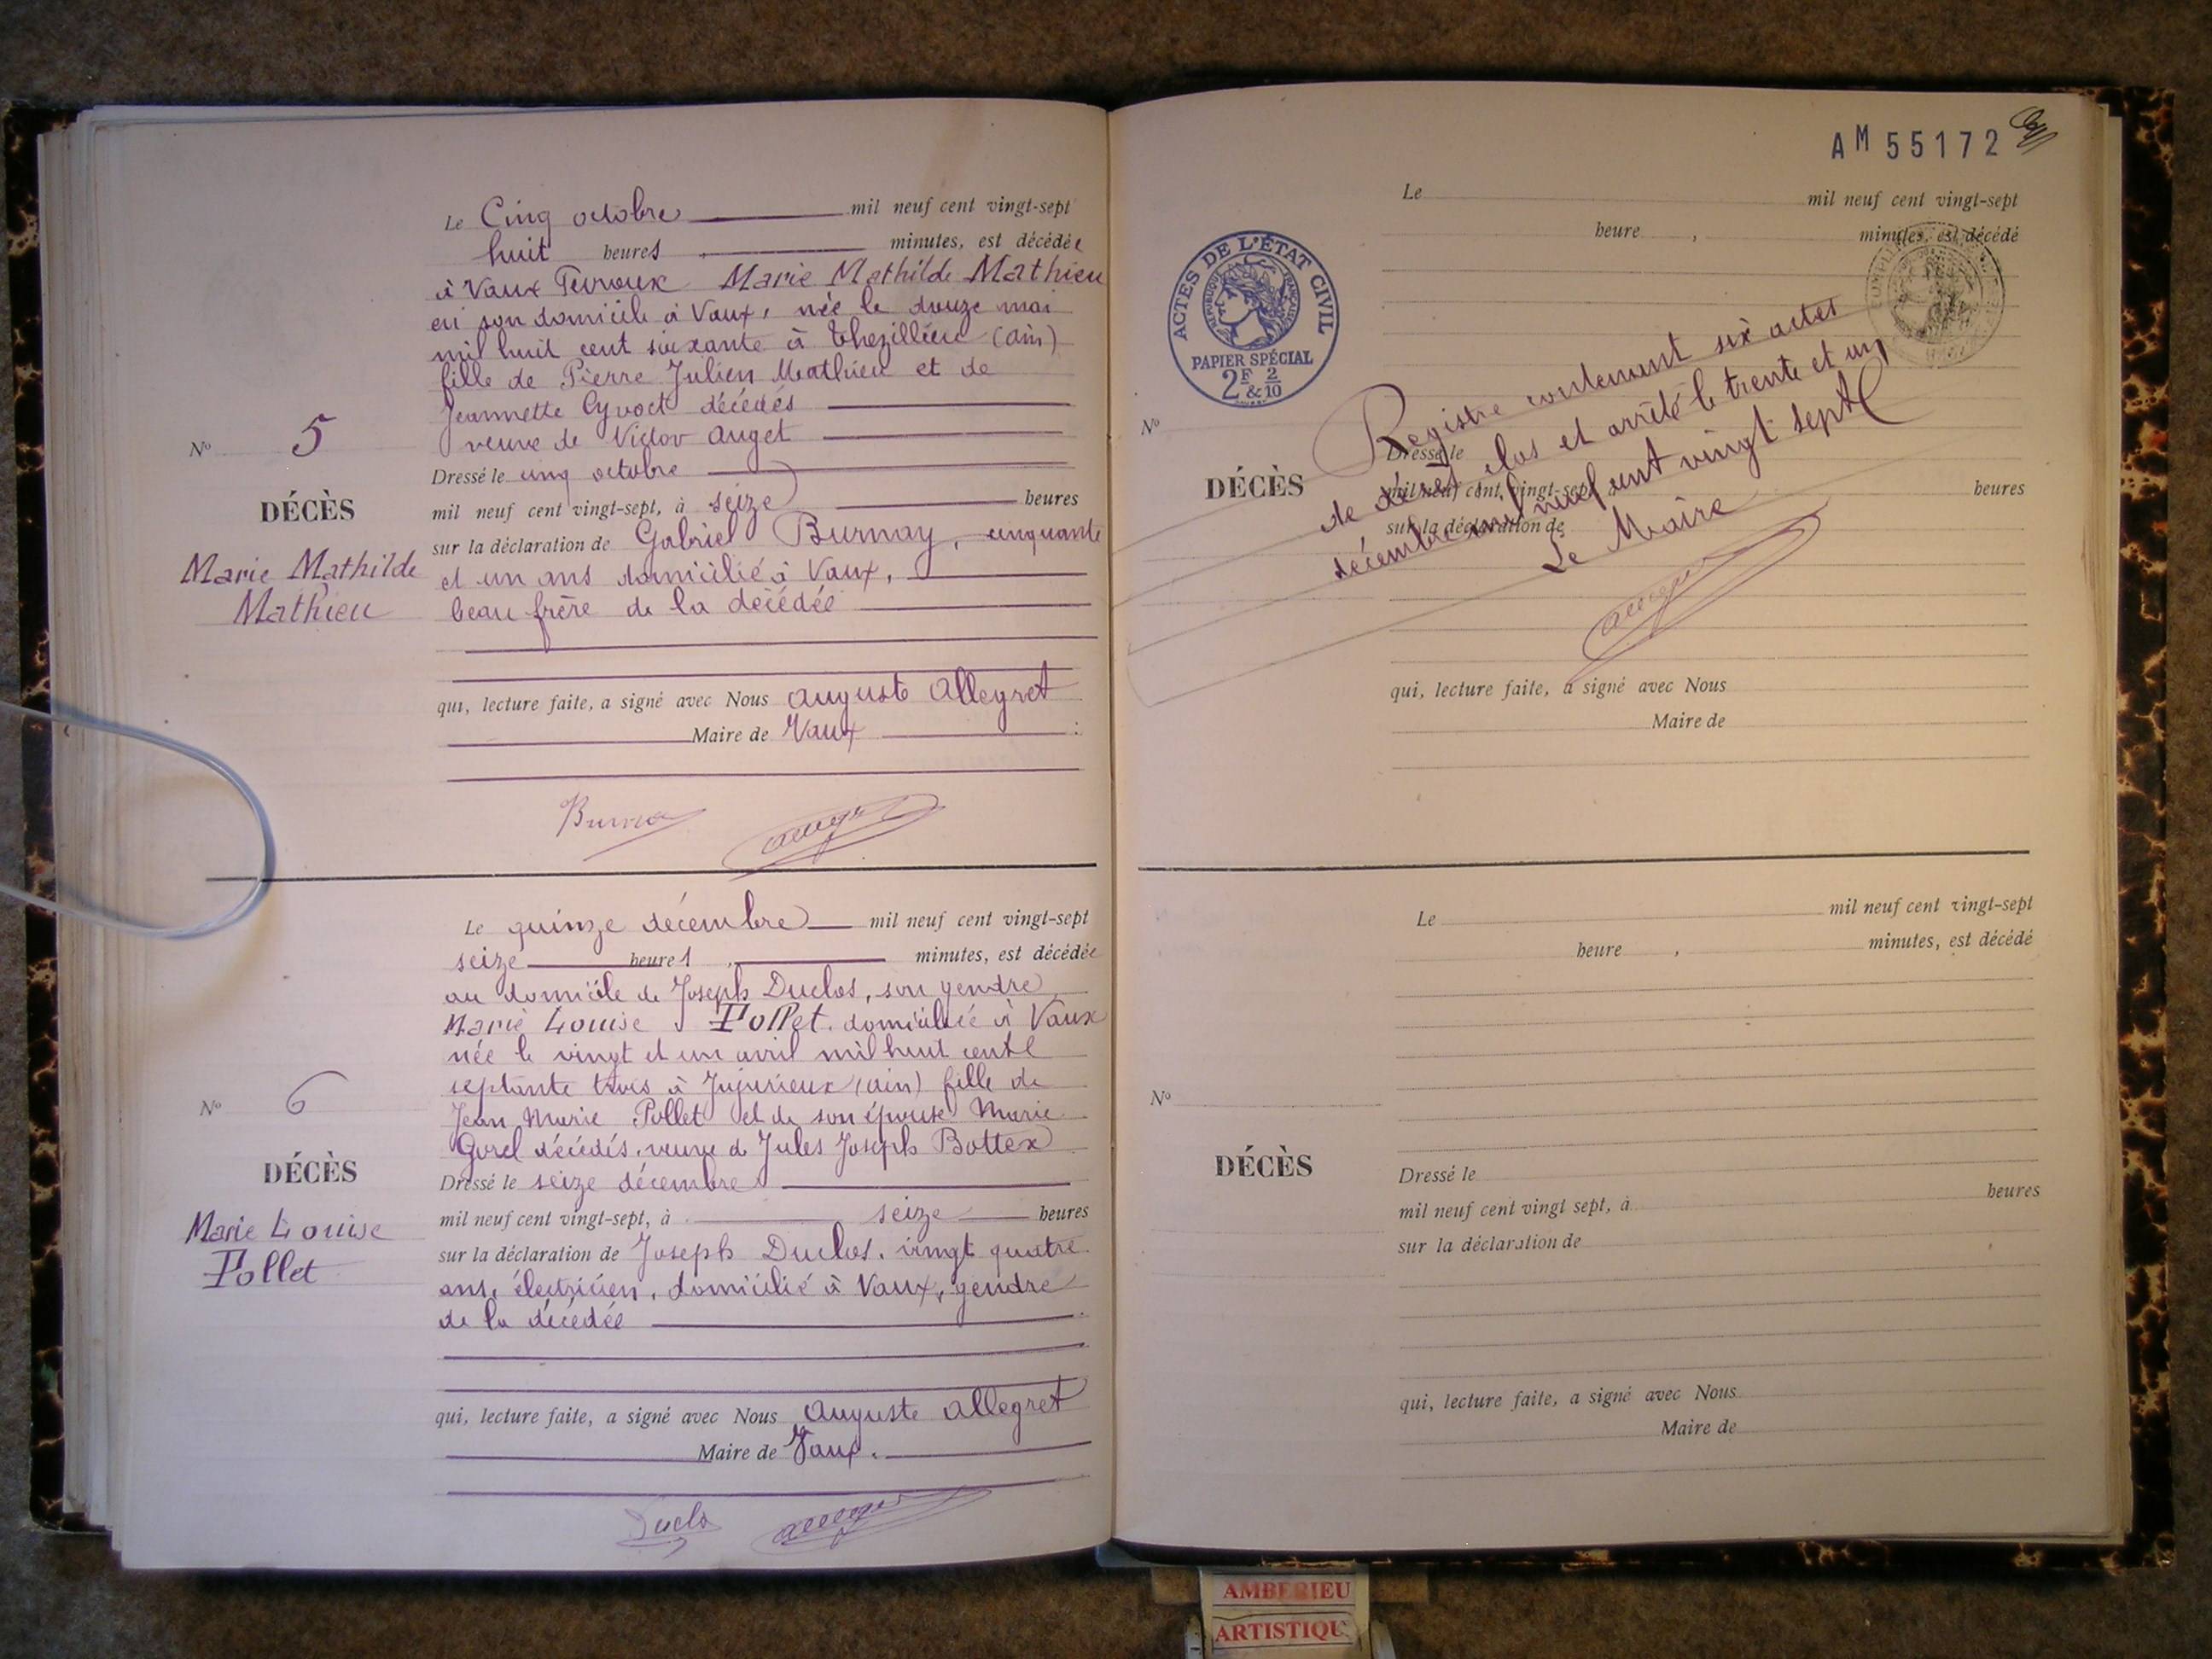 Le Cinq octobre mil neuf cent vingt-sept
huit heures, minutes, est décédée
à Vaux Marie Mathilde Mathieu
en son domicile à Vaux, née le douze mai
mil huit cent soixante à Thezillieu (ain)
fille de Pierre Julien Mathieu et de
Jeannette Cyvoct décédés
veuve de Victor Auget
Nº 5
DÉCÈS
Marie Mathilde
Mathieu
Dressé le cinq octobre
mil neuf cent vingt-sept, à seize heures
sur la déclaration de Gabriel Burnay, cinquante
et un ans domicilié à Vaux,
beau frère de la décédée
qui, lecture faite, a signé avec Nous auguste allegret
Maire de Vaux
Le quinze décembre mil neuf cent vingt-sept
seize heures, minutes, est décédée
au domicile de Joseph Duclos, son gendre
Marie Louise Pollet. domiciliée à Vaux
née le vingt et un avril mil huit cent
septante trois à Jujurieux (ain) fille de
Jean Marie Pollet et de son épouse Marie
Gorel décédés. veuve d Jules Joseph Bottex
Nº 6
DÉCÈS
Marie Louise
Pollet
Dressé le seize décembre
mil neuf cent vingt-sept, à seize heures
sur la déclaration de Joseph Duclos. vingt quatre
ans, électricien, domicilié à Vaux, gendre
de la décédée
qui, lecture faite, a signé avec Nous Auguste allegret
Maire de Vaux.
Duclo
AM 55172
ACTES DE L'ÉTAT CIVIL
RÉPUBLIQUE FRANÇAISE
PAPIER SPÉCIAL
2F & 2/10
Le mil neuf cent vingt-sept
heure, minutes, est décédé
Nº
DÉCÈS
Registre contenant six actes
de décès clos et arrêté le trente et un
décembre mil neuf cent vingt sept
Le Maire
Dressé le
mil neuf cent vingt-sept, à heures
sur la déclaration de
qui, lecture faite, a signé avec Nous
Maire de
Le mil neuf cent vingt-sept
heure, minutes, est décédé
Nº
DÉCÈS
Dressé le
mil neuf cent vingt sept, à heures
sur la déclaration de
qui, lecture faite, a signé avec Nous
Maire de
AMBERIEU
ARTISTIQU